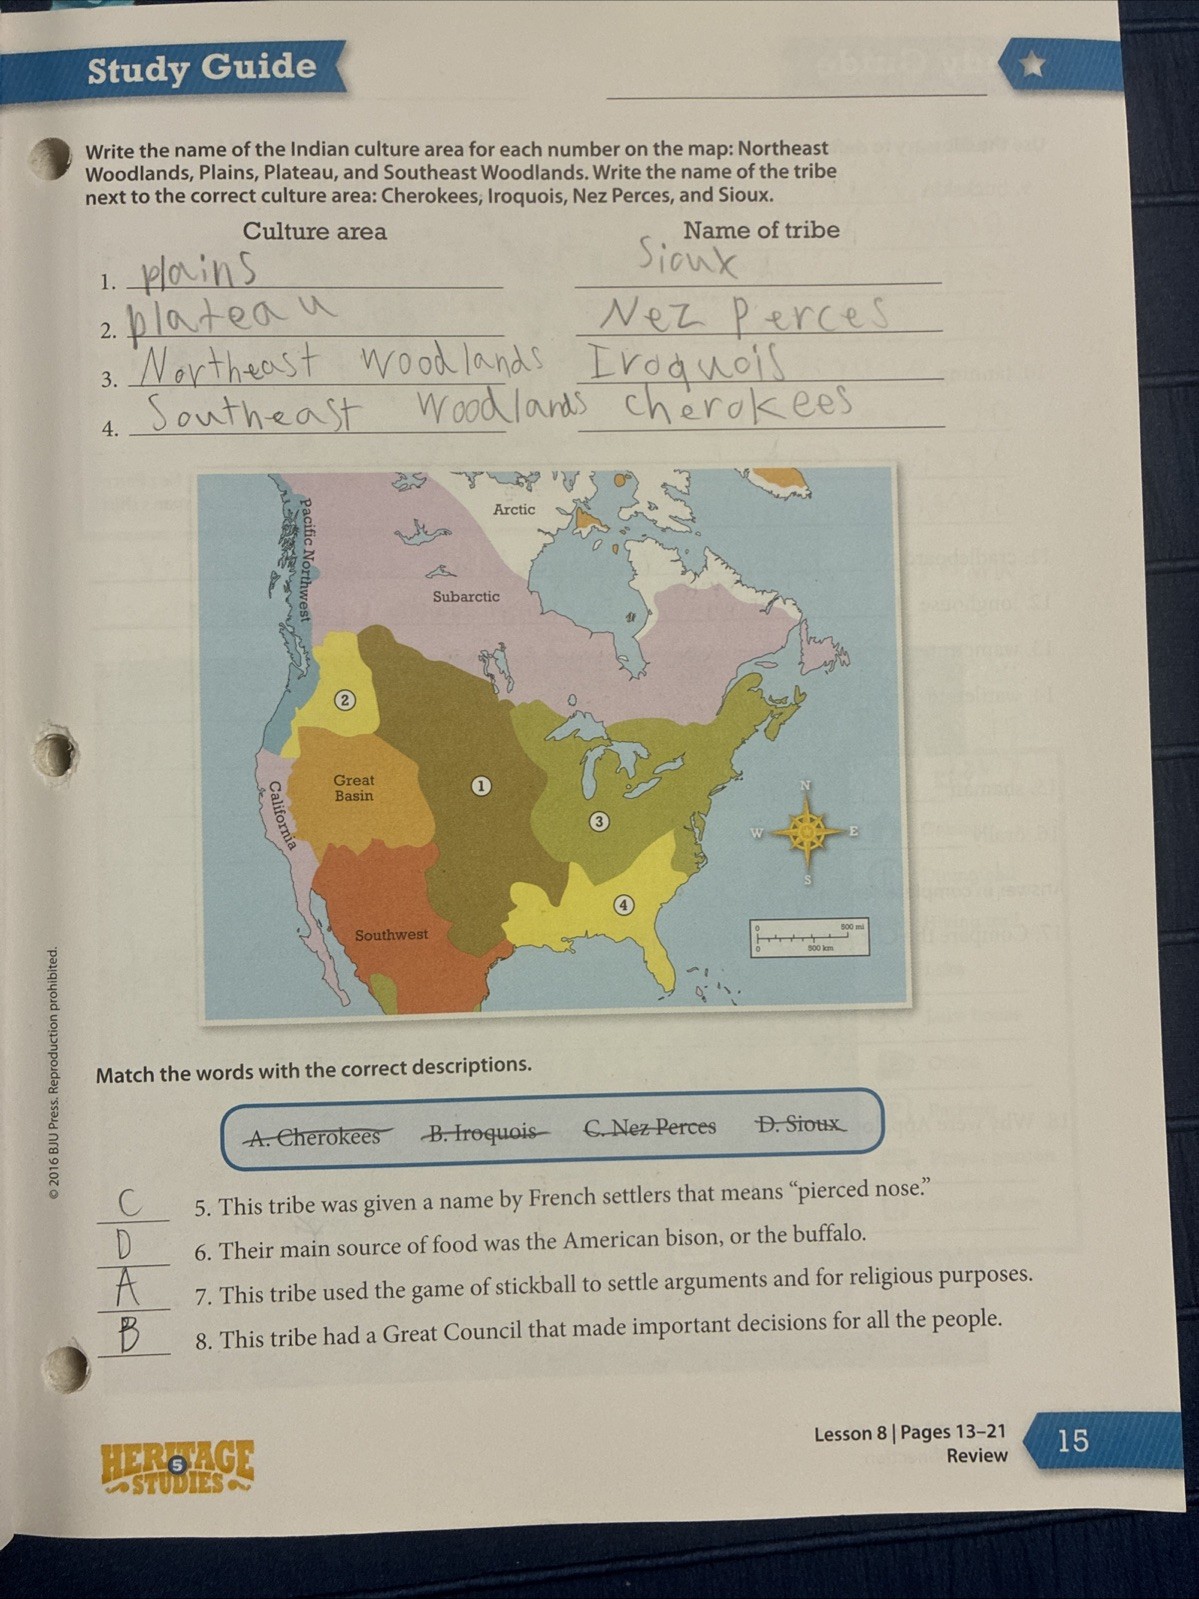 Study Guide
Write the name of the Indian culture area for each number on the map: Northeast
Woodlands, Plains, Plateau, and Southeast Woodlands. Write the name of the tribe
next to the correct culture area: Cherokees, Iroquois, Nez Perces, and Sioux.
Culture area Name of tribe
1. plains Sioux
2. plateau Nez Perces
3. Northeast Woodlands Iroquois
4. Southeast Woodlands cherokees
Arctic
Pacific Northwest
Subarctic
2
Great
Basin
1
California
3
N
W E
S
4
Southwest
0 500 mi
0 500 km
Match the words with the correct descriptions.
A. Cherokees B. Iroquois C. Nez Perces D. Sioux
C 5. This tribe was given a name by French settlers that means “pierced nose.”
D 6. Their main source of food was the American bison, or the buffalo.
A 7. This tribe used the game of stickball to settle arguments and for religious purposes.
B 8. This tribe had a Great Council that made important decisions for all the people.
© 2016 BJU Press. Reproduction prohibited.
HERITAGE
5
STUDIES
Lesson 8 | Pages 13–21
Review
15